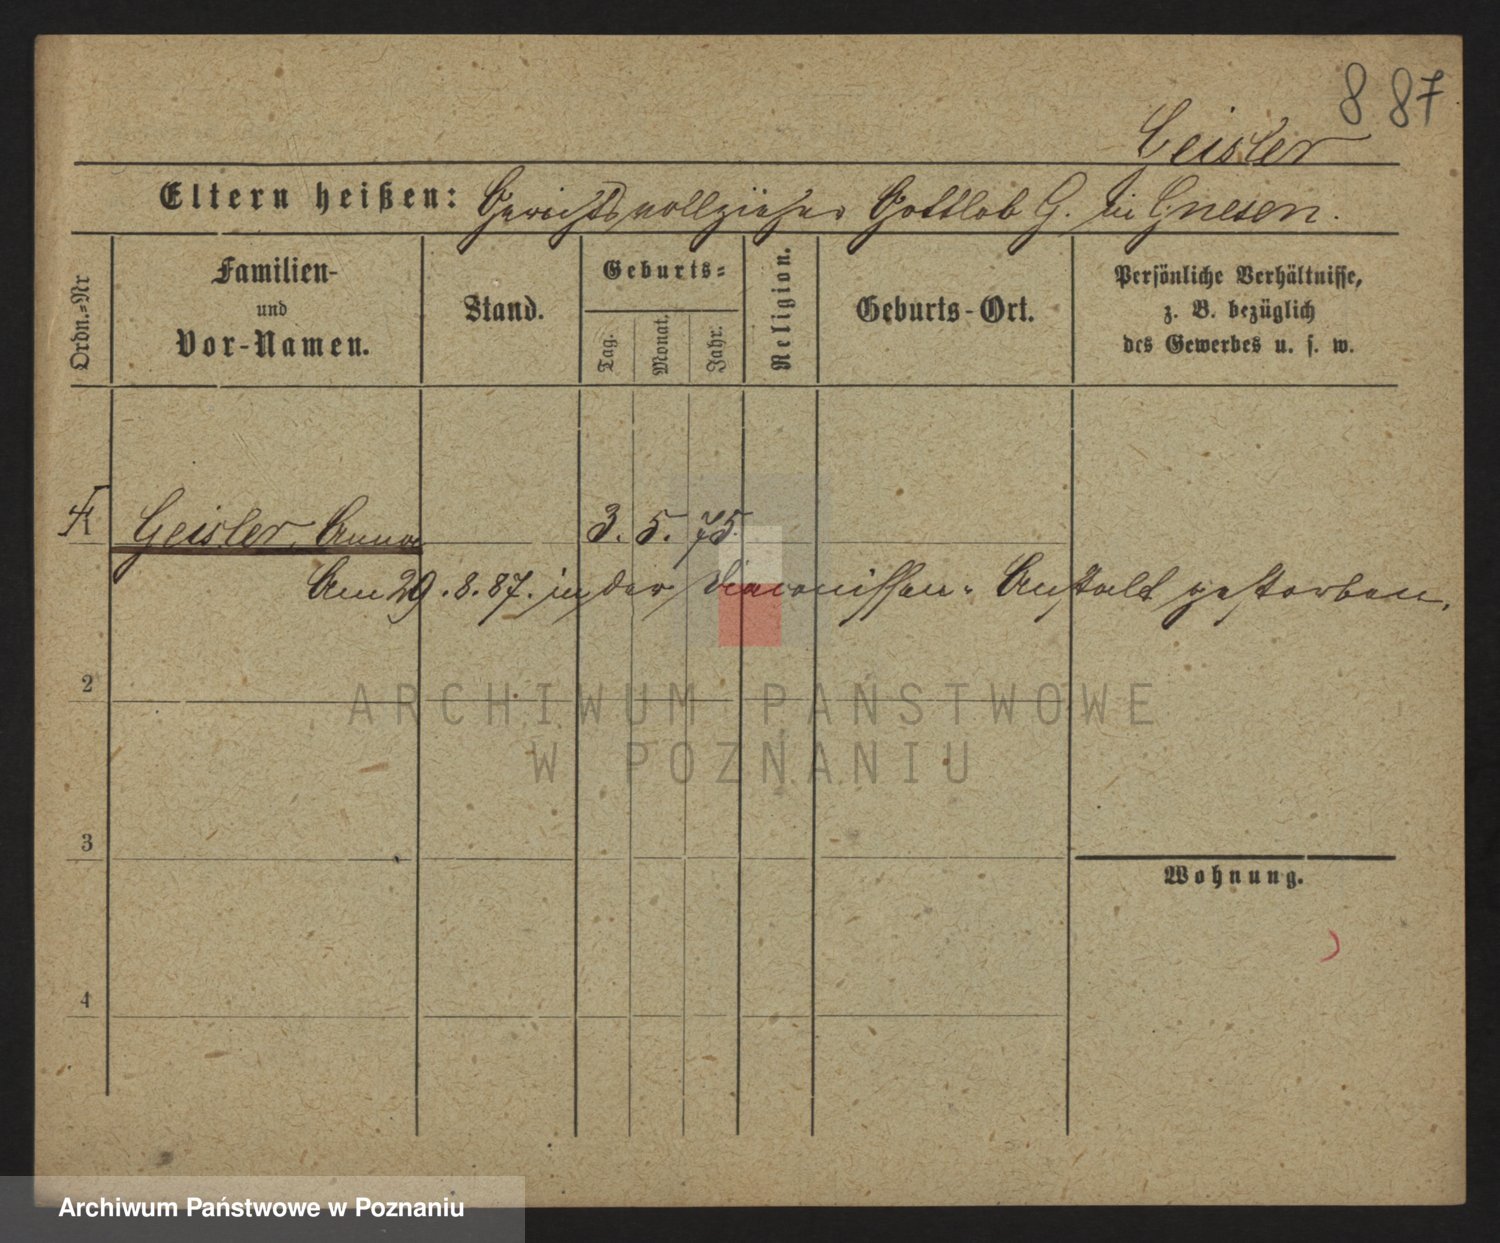 8 87
Geisler
Eltern heißen: Gerichtsvollzieher Gottlob G. in Gnesen.
Ordn.=Nr
Familien-
und
Vor-Namen.
Stand.
Geburts=
Tag.
Monat.
Jahr.
Religion.
Geburts-Ort.
Persönliche Verhältnisse,
z. B. bezüglich
des Gewerbes u. s. w.
Geisler, Anna 3. 5. 75.
Am 29.8.87. in der Diaconissen-Anstalt gestorben.
2
ARCHIWUM PAŃSTWOWE
W POZNANIU
3
Wohnung.
4
Archiwum Państwowe w Poznaniu